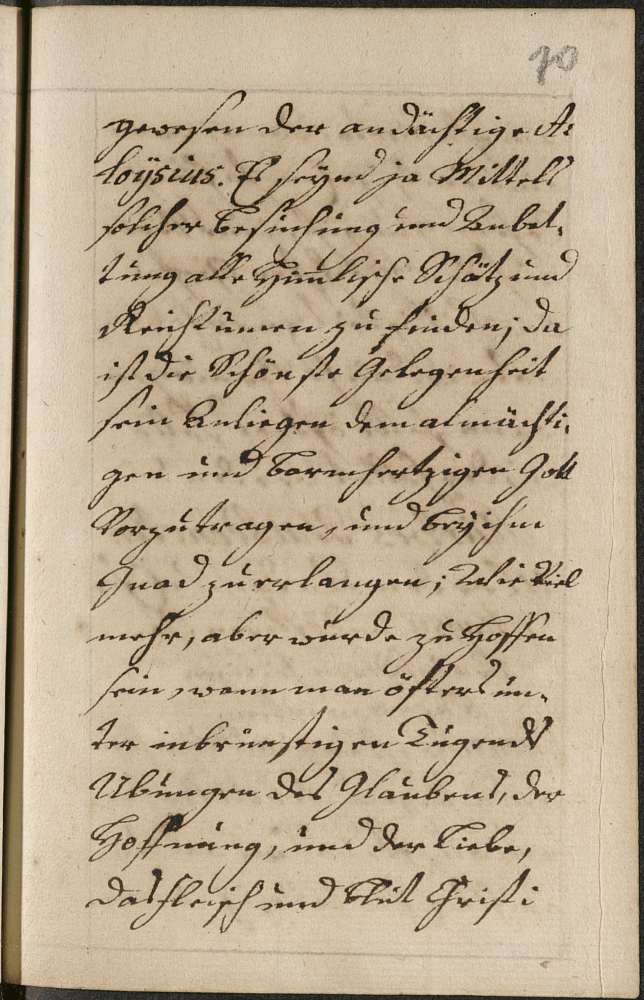 70
gewesen der andächtige A:
loÿsius. Es seynd ja Mittels
solcher besuchung und Anbet,
tung alle Himlische Schätz und
Reichtumen zu finden; da
ist die Schönste Gelegenheit
sein Anliegen dem almächti,
gen und barmhertzigen Gott
Vorzutragen, und bey ihm
Gnad zu erlangen; Wie Viel
mehr, aber wurde zu Hoffen
sein, wann man öfters un,
ter inbrünstigen Tugends
Ubungen des Glaubens, der
Hoffnung, und der Liebe,
das fleisch und Blut Christi